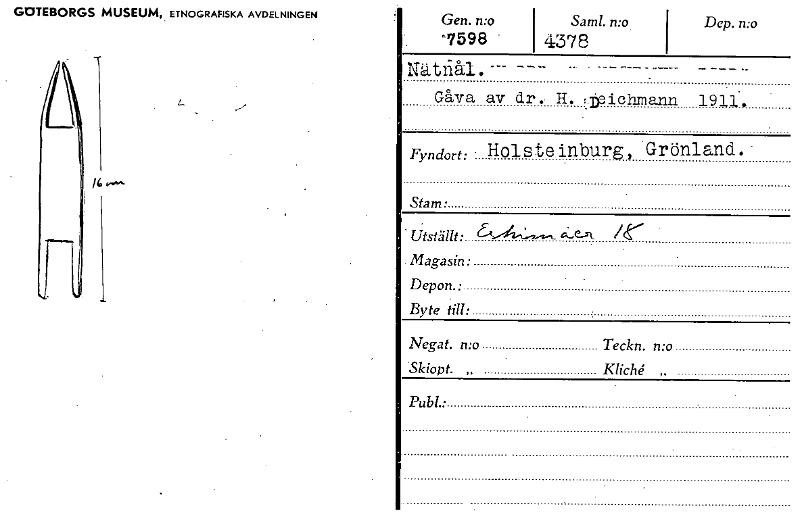 GÖTEBORGS MUSEUM, ETNOGRAFISKA AVDELNINGEN
16 cm
Gen. n:o Saml. n:o Dep. n:o
7598 4378
Nätnål.
Gåva av dr. H. Deichmann 1911.
Fyndort: Holsteinburg, Grönland.
Stam:
Utställt: Eskimåer 18
Magasin:
Depon.:
Byte till:
Negat. n:o Teckn. n:o
Skiopt. „ Kliché „
Publ.: